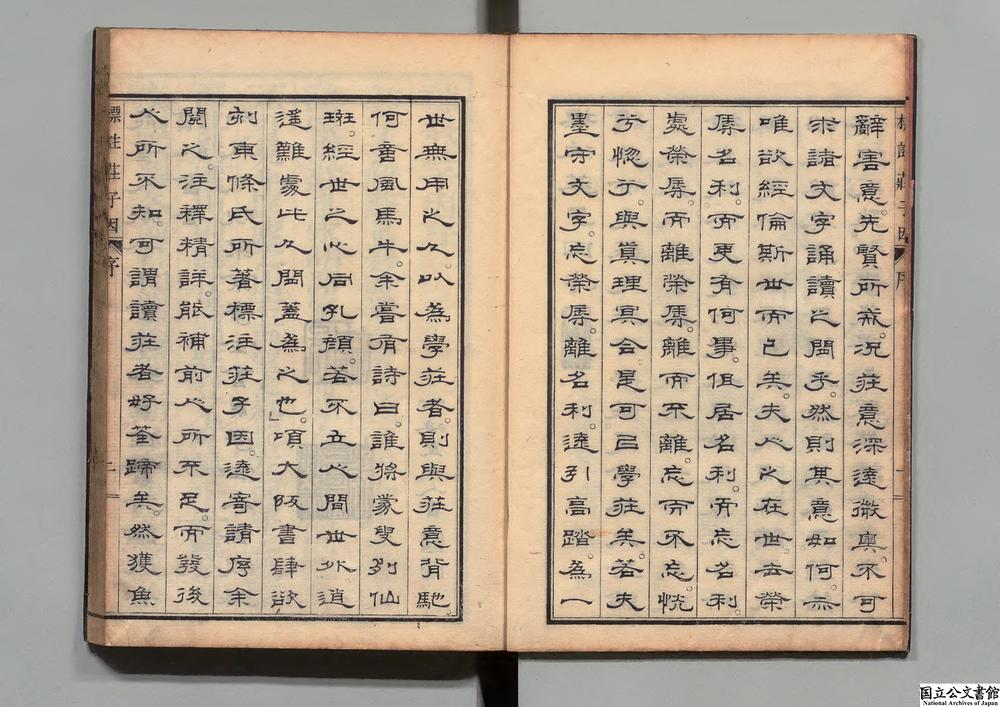 標註莊子因 序 一
辭害意。先賢所戒。況莊意深遠微奧。不可
求諸文字誦讀之間乎。然則其意如何。亦
唯欲經倫斯世而已矣。夫人之在世。去榮
辱名利。而更有何事。但居名利。而忘名利。
處榮辱。而離榮辱。離而不離。忘而不忘。恍
兮惚兮。與眞理冥合。是可曰學莊矣。若夫
墨守文字。忘榮辱。離名利。遠引高踏。為一
世無用之人。以為學莊者。則與莊意背馳
何啻風馬牛。余嘗有詩曰。誰將蒙叟列仙
班。經世之心同孔顏。若不立人間世外逍
遙難處此人間蓋為之也」頃大阪書肆欲
刻東條氏所著標注莊子因。遠寄請序余
閱之。注釋精詳。能補前人所不足。而發後
人所不知。可謂讀莊者好筌蹄矣。然獲魚
標註莊子因 序 二
国立公文書館
National Archives of Japan